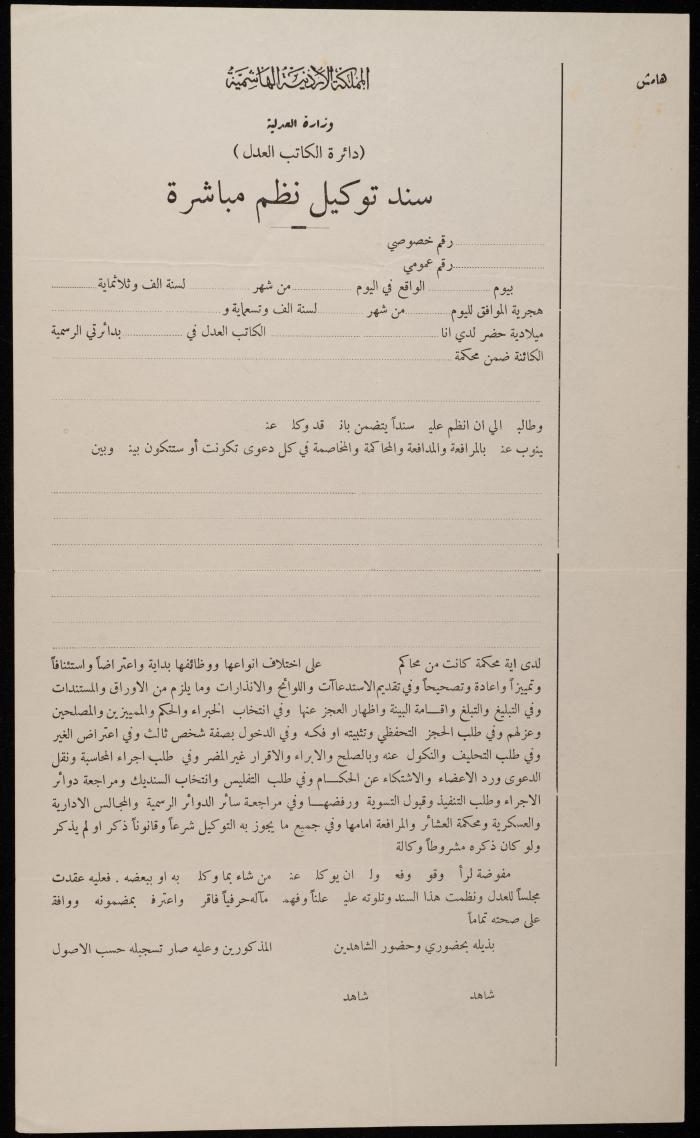 هامش
المملكة الأردنية الهاشمية
وزارة العدلية
(دائرة الكاتب العدل)
سند توكيل نظم مباشرة
رقم خصوصي
رقم عمومي
بيوم الواقع في اليوم من شهر لسنة الف وثلاثماية
هجرية الموافق لليوم من شهر لسنة الف وتسعماية و
ميلادية حضر لدي انا الكاتب العدل في بدائرتي الرسمية
الكائنة ضمن محكمة
وطالب الي ان انظم عليه سنداً يتضمن بانه قد وكل عنه
ينوب عنه بالمرافعة والمدافعة والمحاكمة والمخاصمة في كل دعوى تكونت أو ستتكون بينه وبين
لدى اية محكمة كانت من محاكم على اختلاف انواعها ووظائفها بداية واعتراضاً واستئنافاً
وتمييزاً واعادة وتصحيحاً وفي تقديم الاستدعاآت واللوائح والانذارات وما يلزم من الاوراق والمستندات
وفي التبليغ والتبلغ واقامة البينة واظهار العجز عنها وفي انتخاب الخبراء والحكم والمميزين والمصلحين
وعزلهم وفي طلب الحجز التحفظي وتثبيته او فكه وفي الدخول بصفة شخص ثالث وفي اعتراض الغير
وفي طلب التحليف والنكول عنه وبالصلح والابراء والاقرار غير المضر وفي طلب اجراء المحاسبة ونقل
الدعوى ورد الاعضاء والاشتكاء عن الحكام وفي طلب التفليس وانتخاب السنديك ومراجعة دوائر
الاجراء وطلب التنفيذ وقبول التسوية ورفضها وفي مراجعة سائر الدوائر الرسمية والمجالس الادارية
والعسكرية ومحكمة العشائر والمرافعة امامها وفي جميع ما يجوز به التوكيل شرعاً وقانوناً ذكر او لم يذكر
ولو كان ذكره مشروطاً وكالة
مفوضة لرأ وقو وفعـ ولـ ان يوكلـ عنـ من شاء بما وكلـ به او ببعضه . فعليه عقدت
مجلساً للعدل ونظمت هذا السند وتلوته عليـ علناً وفهمـ مآله حرفياً فاقر واعترف بمضمونه ووافقـ
على صحته تماماً
بذيله بحضوري وحضور الشاهدين المذكورين وعليه صار تسجيله حسب الاصول
شاهد شاهد